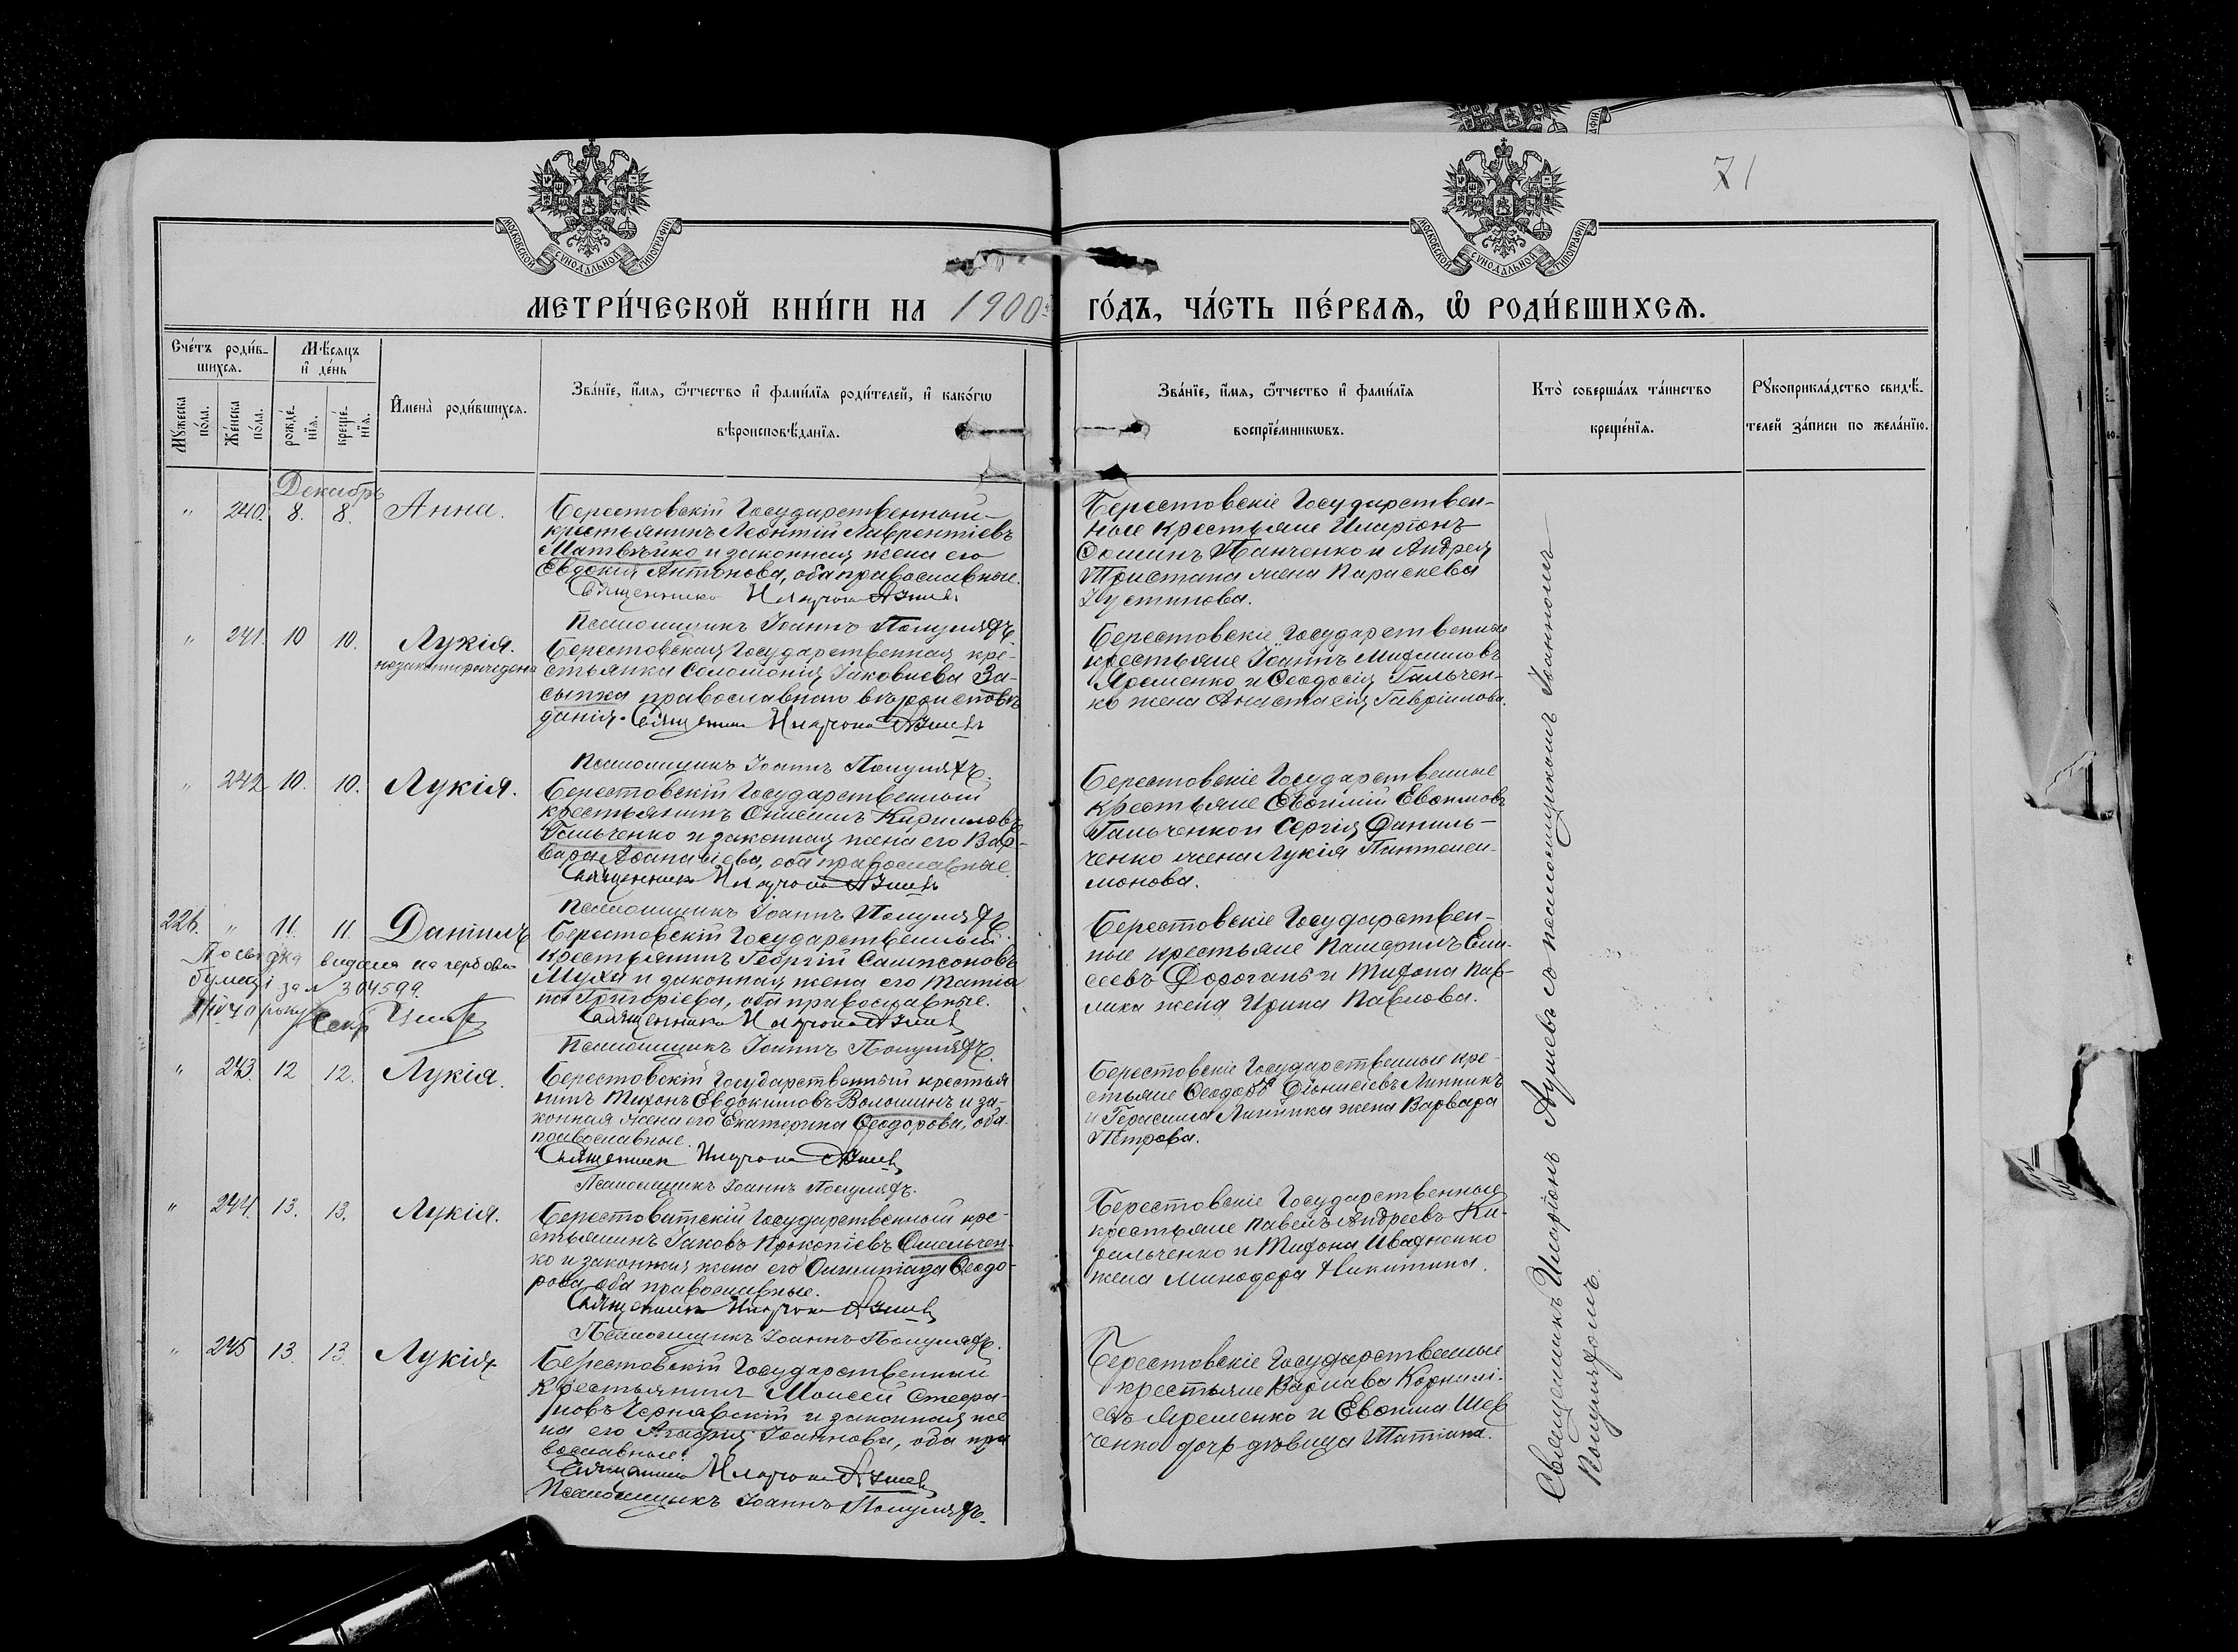 71
МОСКОВСКОЙ СѴНОДАЛЬНОЙ ТИПОГРАФІИ
МОСКОВСКОЙ СѴНОДАЛЬНОЙ ТИПОГРАФІИ
МЕТРИ́ЧЕСКОЙ КНИ́ГИ НА 1900 ГО́ДЪ, ЧА́СТЬ ПЕ́РВАѦ, Ѡ҆ РОДИ́ВШИХСѦ.
Сче́тъ роди́в-
шихсѧ.
Мѣ́сѧцъ
и҆ де́нь
Мꙋ́жеска
по́ла.
Же́нска
по́ла.
рожде́-
нїѧ.
креще́-
нїѧ.
И҆мена̀ роди́вшихсѧ.
Зва́нїе, и҆́мѧ, ѻ҆́тчество и҆ фами́лїѧ роди́телей, и҆ како́гѡ
вѣроисповѣ́данїѧ.
Зва́нїе, и҆́мѧ, ѻ҆́тчество и҆ фами́лїѧ
воспрїе́мникѡвъ.
Кто̀ соверша́лъ та́инство
креще́нїѧ.
Рꙋкоприкла́дство свидѣ́-
телей за́писи по жела́нїю.
Декабрь
" 240. 8. 8. Анна.
Берестовскій Государственный
крестьянинъ Леонтій Лаврентіевъ
Матвѣйко и законная жена его
Евдокія Антонова, оба православные.
Священникъ Иларіонъ Азиевъ
Псаломщикъ Іоаннъ
Берестовскіе Государствен-
ные крестьяне Иларіонъ
Ѳоминъ Панченко и Андрея
Тристана жена Параскева
Іустинова.
" 241. 10 10. Лукія.
незаконнорожденна
Берестовская Государственная кре-
стьянка Соломонія Іаковлева За-
сыпка православнаго вѣроисповѣ
данія. Священникъ Иларіонъ Азиевъ
Псаломщикъ Іоаннъ
Берестовскіе Государственные
крестьяне Іоаннъ
Яременко и Ѳеодосія Гальчен-
ко жена Анастасія Гавріилова.
" 242 10. 10. Лукія.
Берестовскій Государственный
крестьянинъ Онисимъ Кирилловъ
Гальченко и законная жена его Вар-
вара Аѳанасіева, оба православные.
Священникъ Иларіонъ Азиевъ
Псаломщикъ Іоаннъ
Берестовскіе Государственные
крестьяне Евѳимій Евѳимовъ
Гальченко и Сергія Даниль-
ченко жена Лукія Пантелеи-
монова.
226. " 11. 11. Даніилъ
видана на гербовом
за № 304599.
Берестовскій Государственный
крестьянинъ Георгій Сампсоновъ
Муха и законная жена его Татіа
на Григоріева, оба православные.
Священникъ Иларіонъ Азиевъ
Псаломщикъ Іоаннъ
Берестовскіе Государствен-
ные крестьяне Памфилъ Ели-
сеевъ Дороганъ и Тихона Пав-
лика жена Ирина Павлова.
" 243. 12 12. Лукія.
Берестовскій Государственный крестья
нинъ Тихонъ Евдокимовъ Волошинъ и за-
конная жена его Екатерина Ѳеодорова, оба
православные.
Священникъ Иларіонъ Азиевъ
Псаломщикъ Іоаннъ
Берестовскіе Государственные кре-
стьяне Ѳеодоръ Діонисіевъ Линникъ
и Герасима Линника жена Варвара
Петрова.
" 244. 13. 13. Лукія.
Берестовскій Государственный кре-
стьянинъ Іаковъ Прокопіевъ Омельчен-
ко и законная жена его Олимпіада Ѳеодо-
рова, оба православные.
Священникъ Иларіонъ Азиевъ
Псаломщикъ Іоаннъ
Берестовскіе Государственные
крестьяне Павелъ Андреевъ Ки-
рильченко и Тихона Ивахненко
жена Минодора Никитина.
" 245 13. 13. Лукія
Берестовскій Государственный
крестьянинъ Моисей Стефа-
новъ Чернавскій и законная же
на его Агафія Іоаннова, оба пра
вославные.
Священникъ Иларіонъ Азиевъ
Псаломщикъ Іоаннъ
Берестовскіе Государственные
крестьяне Варлава Корнилі-
евъ Яременко и Евѳима Шев
ченко дочь дѣвица Татіана.
Священникъ Иларіонъ Азиевъ съ псаломщикомъ Іоанномъ